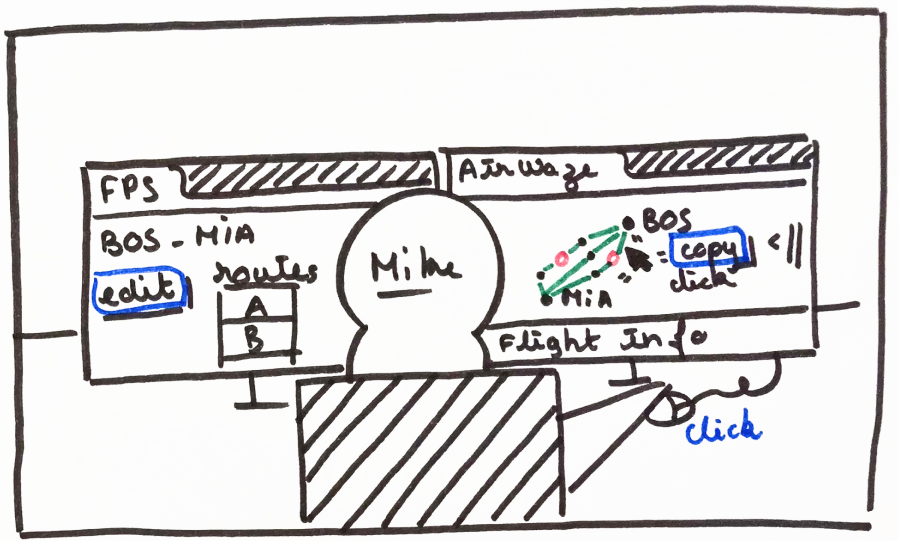 FPS
BOS - MIA
edit
routes
A
B
Mike
AirWaze
BOS
copy
click
MIA
Flight Info
click